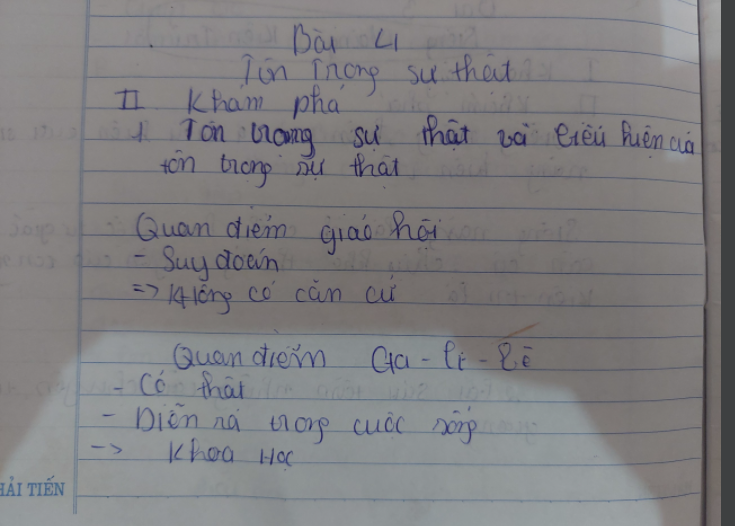 Bài 4
Tôn Trọng sự thật
II Khám phá
1 Tôn trọng sự thật và biểu hiện của
tôn trọng sự thật
Quan điểm giáo hội
- Suy đoán
=> Không có căn cứ
Quan điểm Ga-li-lê
- Có thật
- Diễn ra trong cuộc sống
-> Khoa Học
HẢI TIẾN